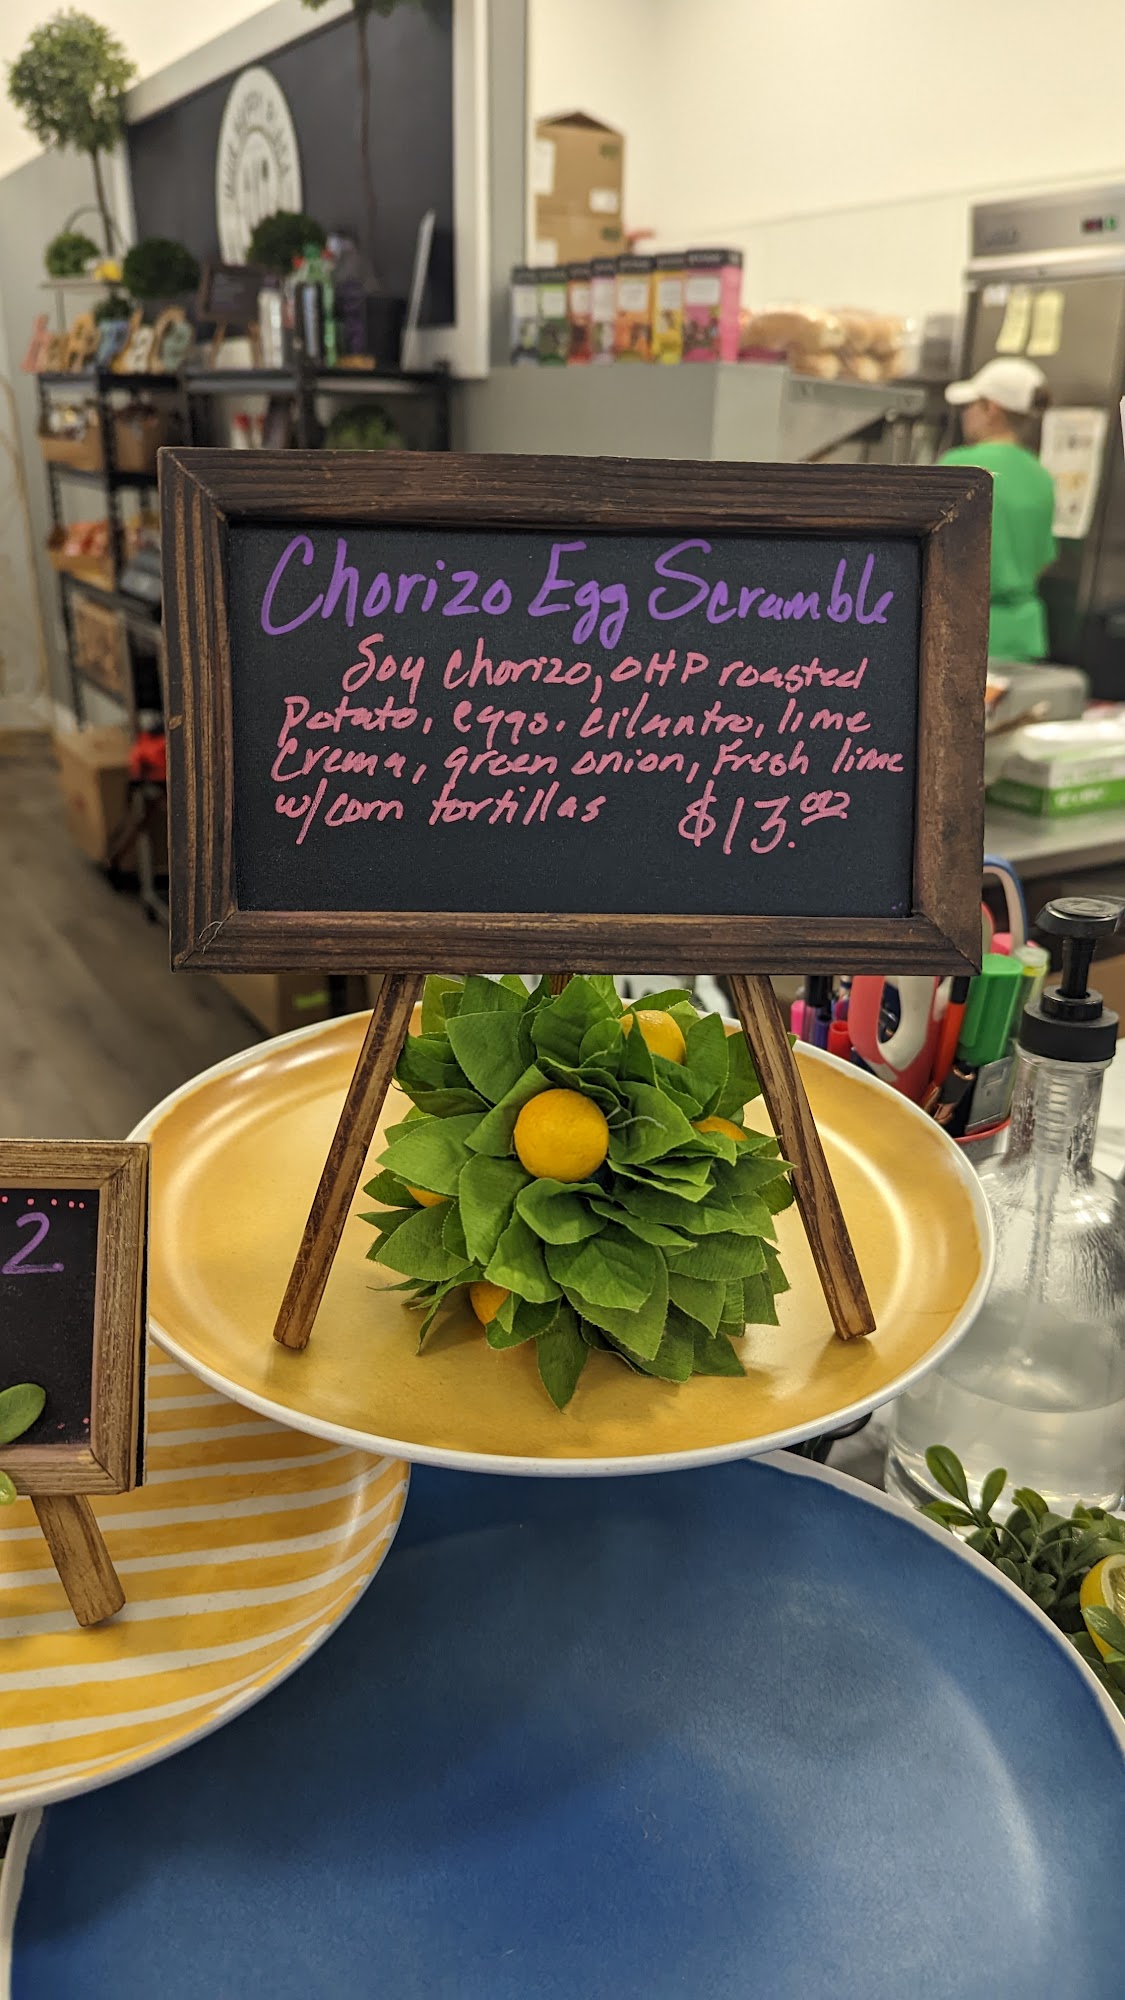 Chorizo Egg Scramble
Soy Chorizo, OHP roasted
Potato, eggs. cilantro, lime
Crema, green onion, Fresh lime
w/corn tortillas $13.00
2